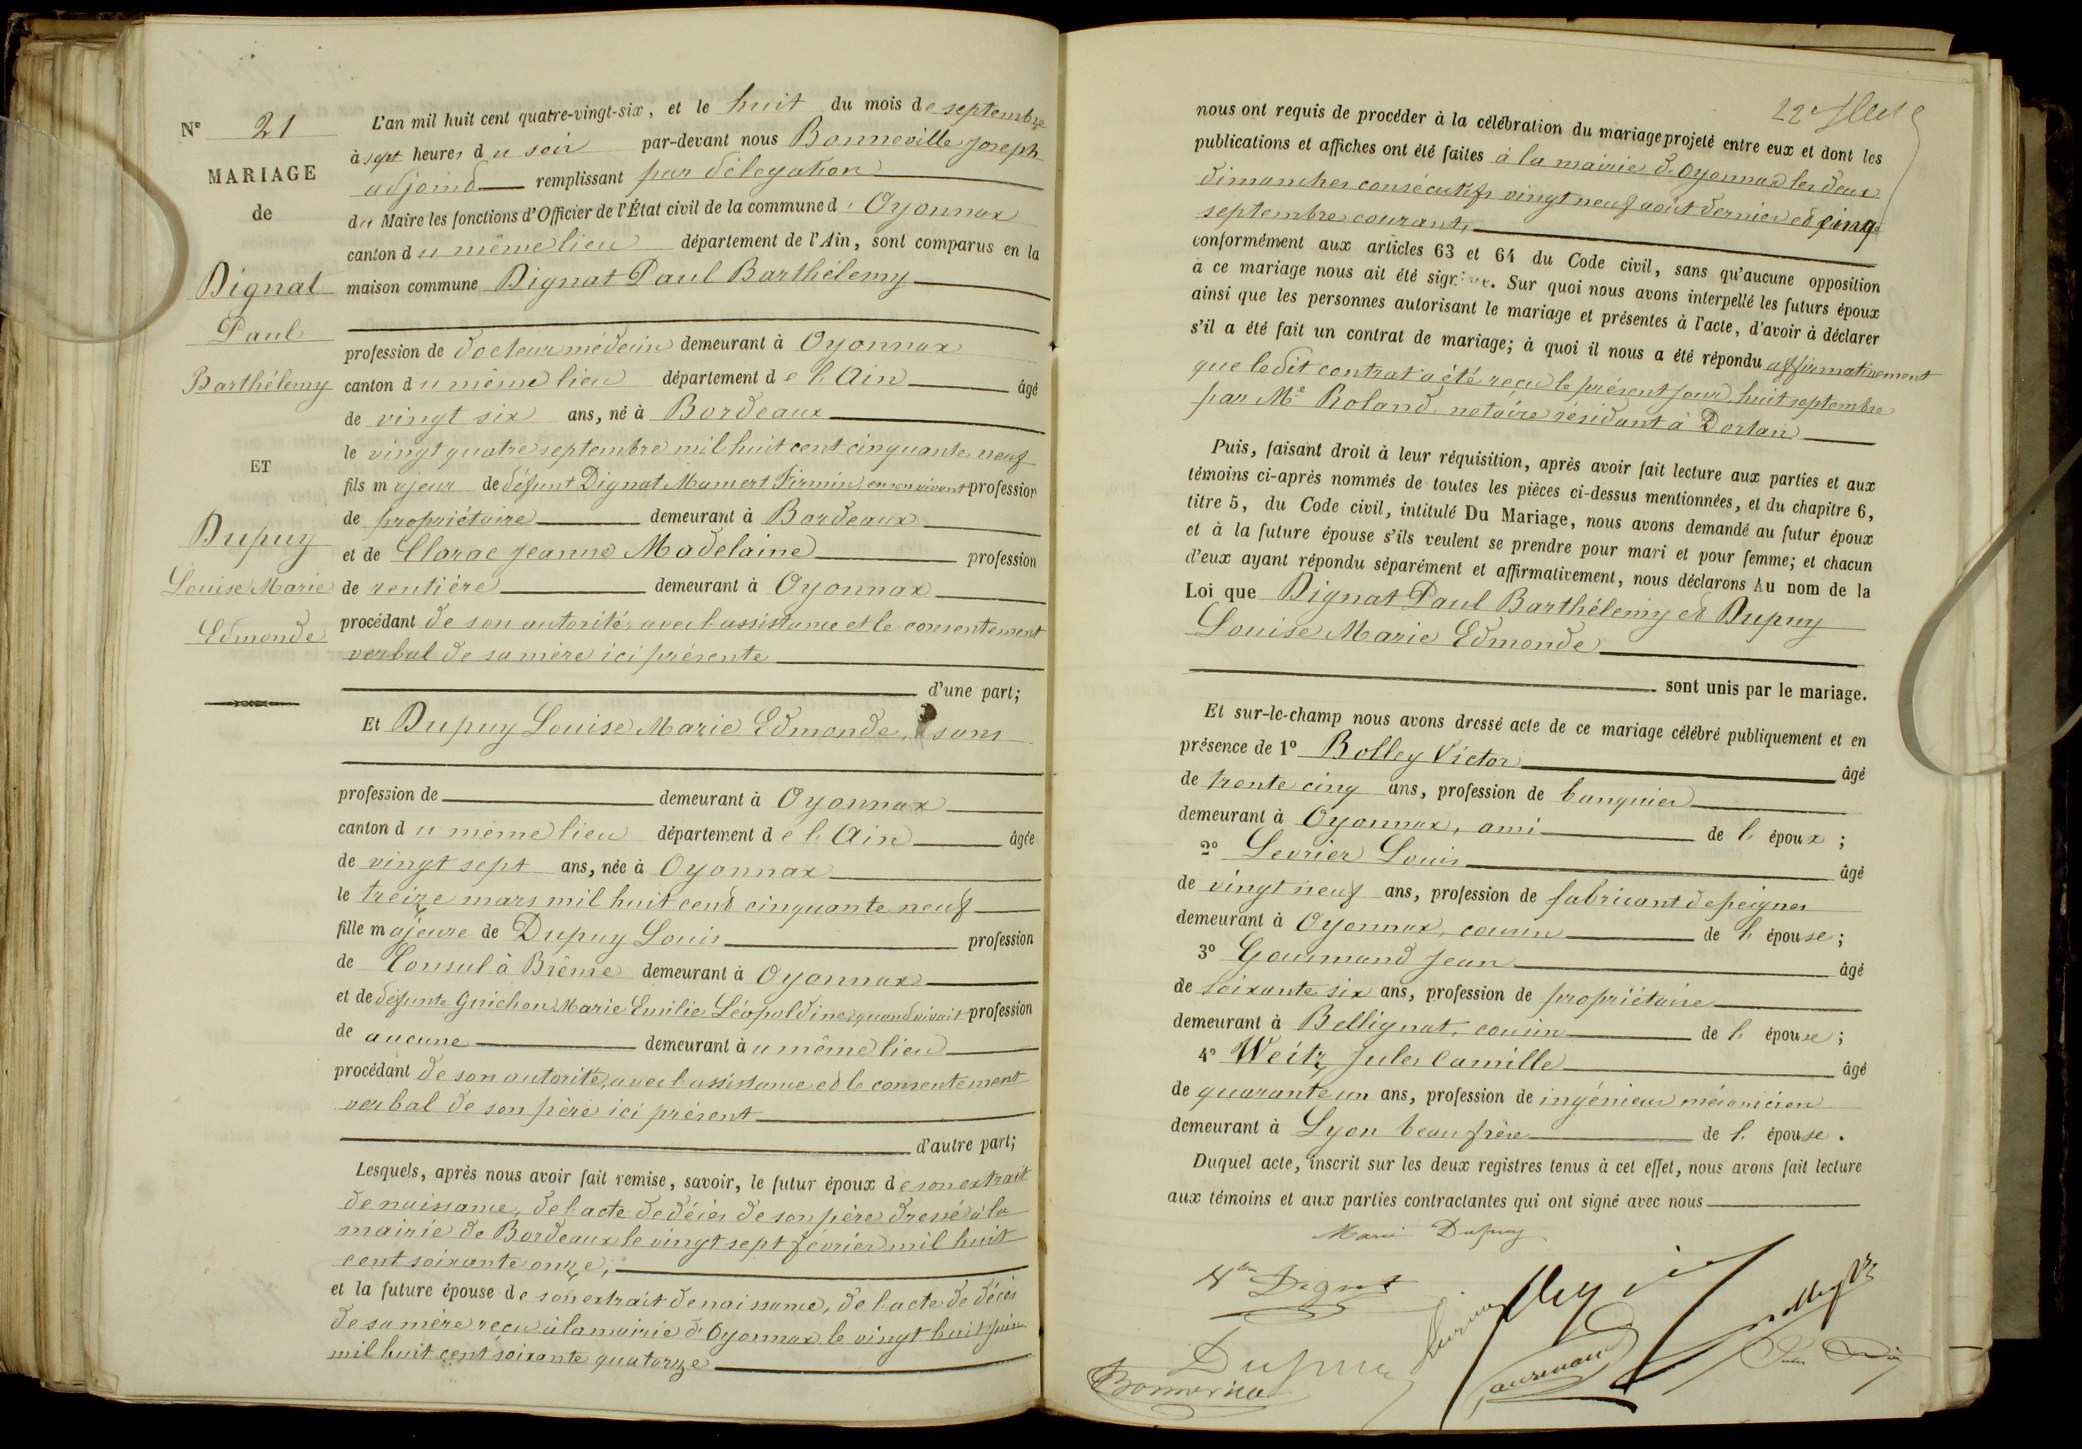 N° 21
MARIAGE
de
Dignat
Paul
Barthélemy
ET
Dupuy
Louise Marie
Edmonde
L'an mil huit cent quatre-vingt-six, et le huit du mois de septembre
à sept heures du soir par-devant nous Bonneville Joseph
adjoint remplissant par délégation
du Maire les fonctions d'Officier de l'État civil de la commune d'Oyonnax
canton du même lieu département de l'Ain, sont comparus en la
maison commune Dignat Paul Barthélemy
profession de docteur médecin demeurant à Oyonnax
canton du même lieu département de l'Ain âgé
de vingt six ans, né à Bordeaux
le vingt quatre septembre mil huit cent cinquante neuf
fils majeur de défunt Dignat Mamert Firmin en son vivant profession
de propriétaire demeurant à Bordeaux
et de Clarac Jeanne Madelaine profession
de rentière demeurant à Oyonnax
procédant de son autorité avec l'assistance et le consentement
verbal de sa mère ici présente
d'une part;
Et Dupuy Louise Marie Edmonde, sans
profession de demeurant à Oyonnax
canton du même lieu département de l'Ain âgée
de vingt sept ans, née à Oyonnax
le treize mars mil huit cent cinquante neuf
fille majeure de Dupuy Louis profession
de Consul à Brême demeurant à Oyonnax
et de défunte Guichon Marie Emilie Léopoldine quand vivait profession
de aucune demeurant au même lieu
procédant de son autorité, avec l'assistance et le consentement
verbal de son père ici présent
d'autre part;
Lesquels, après nous avoir fait remise, savoir, le futur époux de son extrait
de naissance, de l'acte de décès de son père dressé à la
mairie de Bordeaux le vingt sept février mil huit
cent soixante onze,
et la future épouse de son extrait de naissance, de l'acte de décès
de sa mère reçu à la mairie d'Oyonnax le vingt huit juin
mil huit cent soixante quatorze
nous ont requis de procéder à la célébration du mariage projeté entre eux et dont les
publications et affiches ont été faites à la mairie d'Oyonnax les deux
dimanches consécutifs vingt neuf août dernier et cinq
septembre courant,
conformément aux articles 63 et 64 du Code civil, sans qu'aucune opposition
à ce mariage nous ait été signifiée. Sur quoi nous avons interpellé les futurs époux
ainsi que les personnes autorisant le mariage et présentes à l'acte, d'avoir à déclarer
s'il a été fait un contrat de mariage; à quoi il nous a été répondu affirmativement
que ledit contrat a été reçu le présent jour huit septembre
par Me Roland notaire résidant à Dortan
Puis, faisant droit à leur réquisition, après avoir fait lecture aux parties et aux
témoins ci-après nommés de toutes les pièces ci-dessus mentionnées, et du chapitre 6,
titre 5, du Code civil, intitulé Du Mariage, nous avons demandé au futur époux
et à la future épouse s'ils veulent se prendre pour mari et pour femme; et chacun
d'eux ayant répondu séparément et affirmativement, nous déclarons Au nom de la
Loi que Dignat Paul Barthélemy et Dupuy
Louise Marie Edmonde
sont unis par le mariage.
Et sur-le-champ nous avons dressé acte de ce mariage célébré publiquement et en
présence de 1° Bolley Victor âgé
de trente cinq ans, profession de banquier
demeurant à Oyonnax, ami de l'époux;
2° Levrier Louis âgé
de vingt neuf ans, profession de fabricant de peignes
demeurant à Oyonnax, cousin de l'épouse;
3° Gourmand Jean âgé
de soixante six ans, profession de propriétaire
demeurant à Bellignat, cousin de l'épouse;
4° Weitz Jules Camille âgé
de quarante un ans, profession de ingénieur mécanicien
demeurant à Lyon beau frère de l'épouse.
Duquel acte, inscrit sur les deux registres tenus à cet effet, nous avons fait lecture
aux témoins et aux parties contractantes qui ont signé avec nous
Marie Dupuy
Dignat
Dupuy
Bonneville